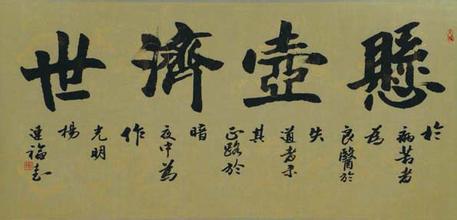 懸壺濟世
於
病苦者
為
良醫於
失
道者示
其
正路於
暗
夜中為
作
光明
楊
連福